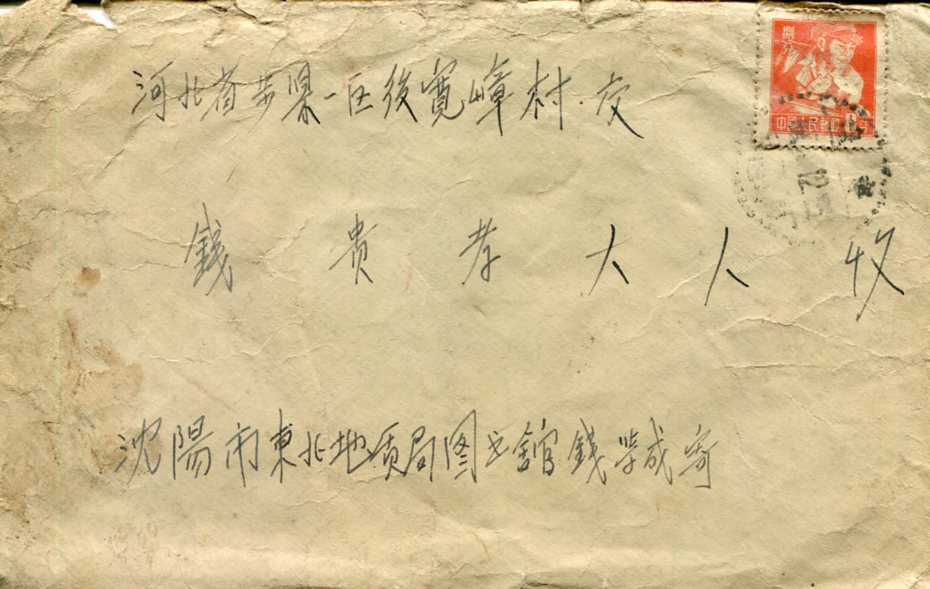 捌分
中国人民邮政 8分
河北省步県一区後寬嶂村.交
錢贵孝大人收
沈陽市東北地质局图书舘錢学成寄